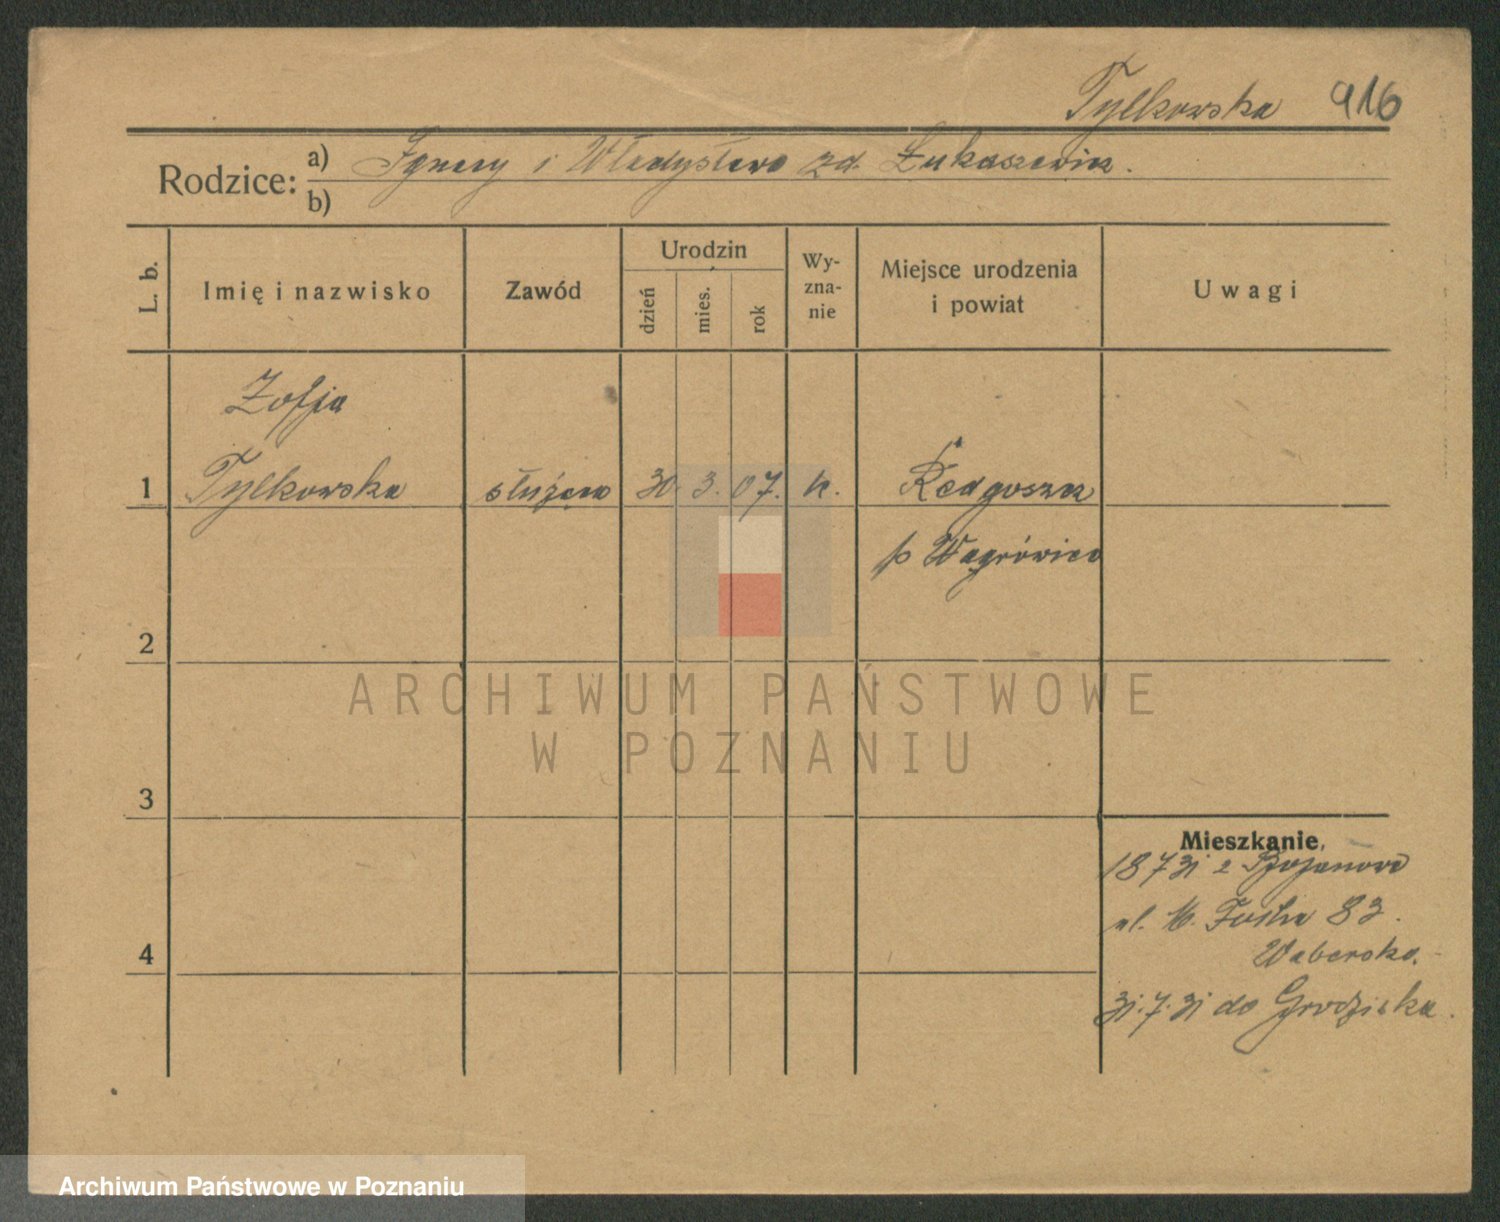 Tylkowska 916
Rodzice: a) Ignacy i Władysława zd. Łukaszewicz.
b)
L. b.
Imię i nazwisko
Zawód
Urodzin
dzień
mies.
rok
Wy-
zna-
nie
Miejsce urodzenia
i powiat
Uwagi
Zofja
1 Tylkowska służąca 30. 3. 07. k. Redgoszcz
p Wągrówiec
2
ARCHIWUM PAŃSTWOWE
W POZNANIU
3
Mieszkanie
18 7 31 z Bojanowa
ul. M. Focha 83.
4
31.7.31 do Grodziska.
Archiwum Państwowe w Poznaniu